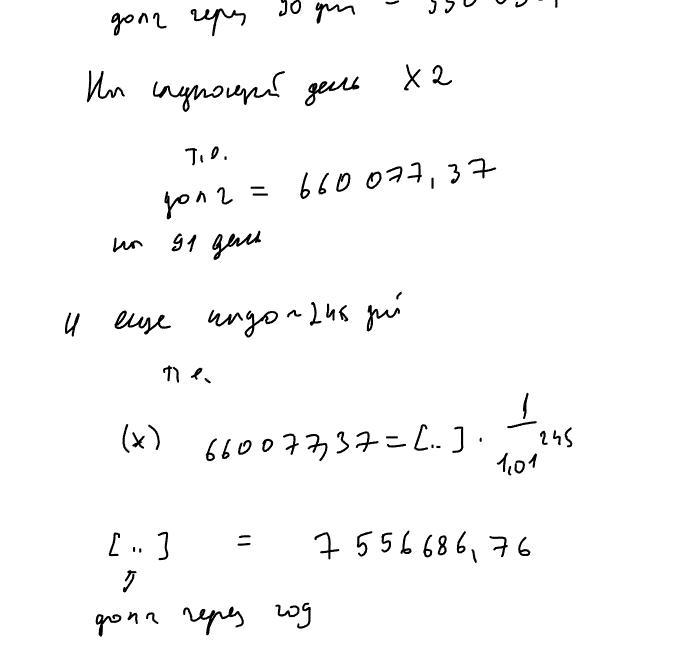 долг через 90 дн =
На следующий день X2
т.о.
долг = 660 077,37
на 91 день
и еще надо ~ 245 дней
т.е.
(x) 660077,37 = [..] · 1/1,01^245
[..] = 7 556686,76
долг через год